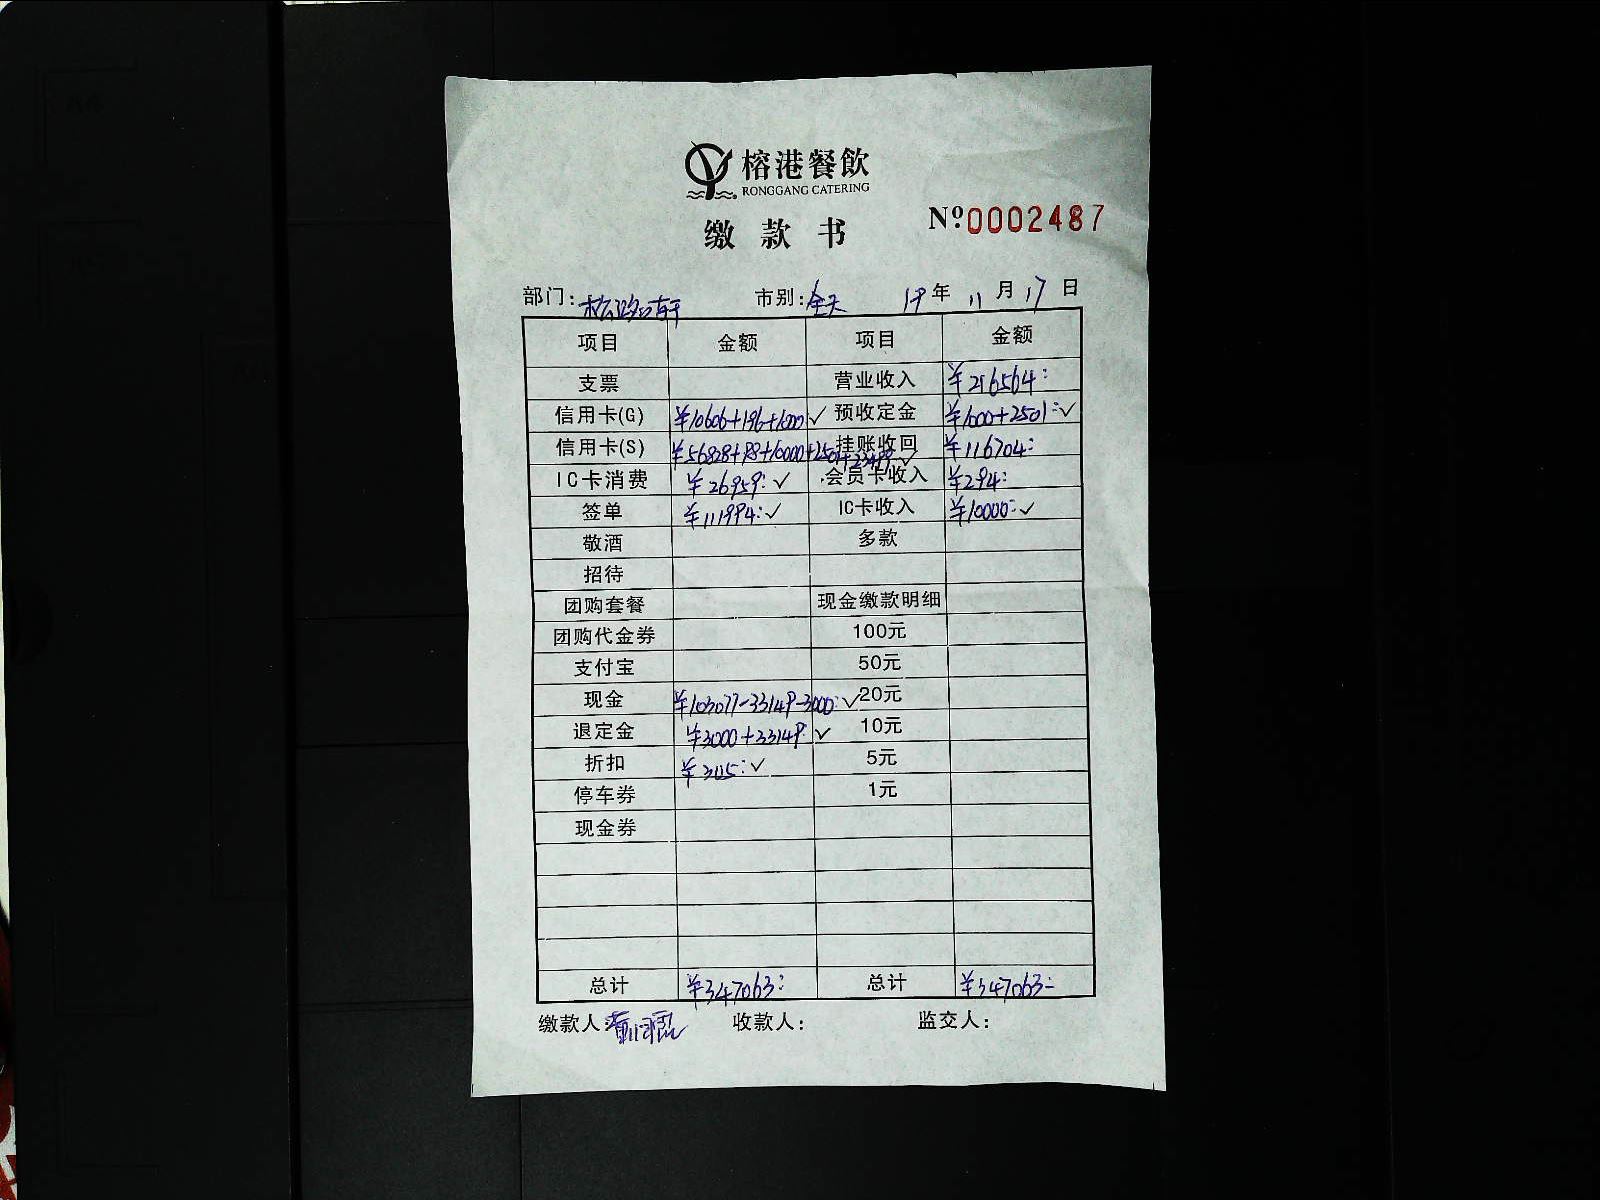 榕港餐飲
RONGGANG CATERING
缴款书
Nº0002487
部门: 市别:全天 19年11月17日
项目 金额 项目 金额
支票 营业收入 ¥216564:
信用卡(G) ¥10606+196+1000✓ 预收定金 ¥1000+2501:✓
信用卡(S) 挂账收回 ¥116704:
IC卡消费 ¥26959:✓ 会员卡收入 ¥294:
签单 ¥111994:✓ IC卡收入 ¥10000:✓
敬酒 多款
招待
团购套餐 现金缴款明细
团购代金券 100元
支付宝 50元
现金 ¥103077-33149-3000:✓ 20元
退定金 ¥3000+33149:✓ 10元
折扣 ✓ 5元
停车券 1元
现金券
总计 ¥347063: 总计 ¥347063:
缴款人: 收款人: 监交人: